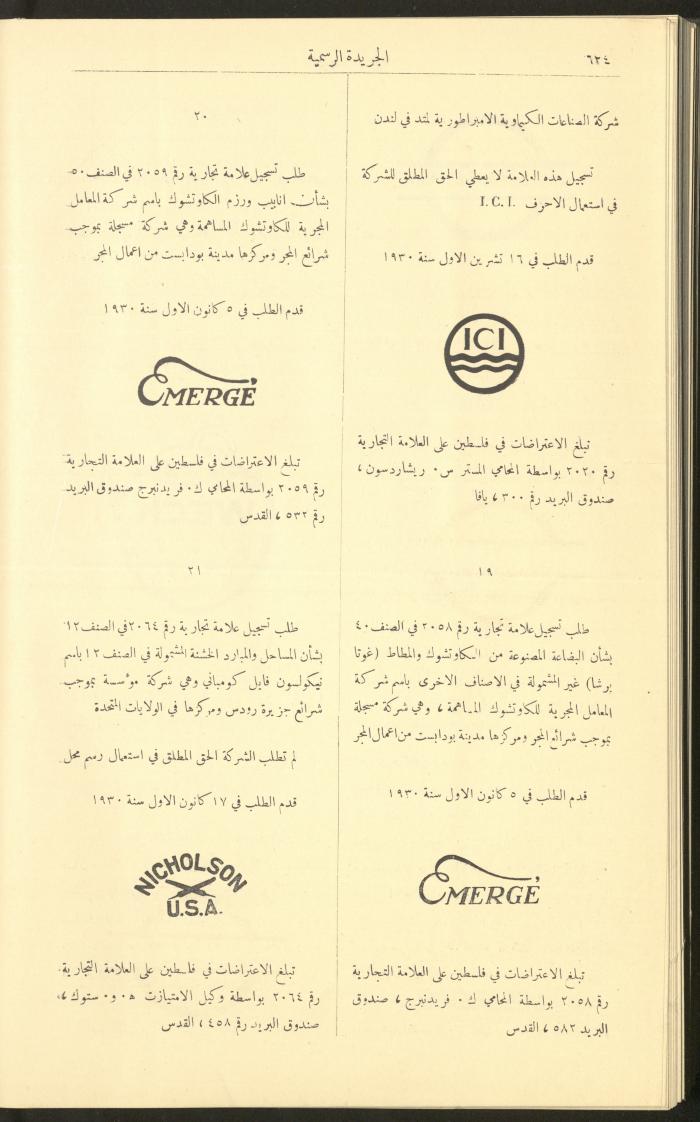 ٦٢٤
الجريدة الرسمية
شركة الصناعات الكيماوية الامبراطورية لمتد في لندن
تسجيل هذه العلامة لا يعطي الحق المطلق للشركة
في استعمال الاحرف I.C.I.
قدم الطلب في ١٦ تشرين الاول سنة ١٩٣٠
ICI
تبلغ الاعتراضات في فلسطين على العلامة التجارية
رقم ٢٠٢٠ بواسطة المحامي المستر س٠ ريشاردسون ،
صندوق البريد رقم ٣٠٠ ، يافا
١٩
طلب تسجيل علامة تجارية رقم ٢٠٥٨ في الصنف ٤٠
بشأن البضاعة المصنوعة من الكاوتشوك والمطاط (غوتا
برشا) غير المشمولة في الاصناف الاخرى باسم شركة
المعامل المجرية للكاوتشوك المساهمة ، وهي شركة مسجلة
بموجب شرائع المجر ومركزها مدينة بودابست من اعمال المجر
قدم الطلب في ٥ كانون الاول سنة ١٩٣٠
EMERGÉ
تبلغ الاعتراضات في فلسطين على العلامة التجارية
رقم ٢٠٥٨ بواسطة المحامي ك٠ فريدنبرج ، صندوق
البريد ٥٨٢ ، القدس
٢٠
طلب تسجيل علامة تجارية رقم ٢٠٥٩ في الصنف ٥٠
بشأن انابيب ورزم الكاوتشوك باسم شركة المعامل
المجرية للكاوتشوك المساهمة وهي شركة مسجلة بموجب
شرائع المجر ومركزها مدينة بودابست من اعمال المجر
قدم الطلب في ٥ كانون الاول سنة ١٩٣٠
EMERGÉ
تبلغ الاعتراضات في فلسطين على العلامة التجارية
رقم ٢٠٥٩ بواسطة المحامي ك٠ فريدنبرج صندوق البريد
رقم ٥٣٢ ، القدس
٢١
طلب تسجيل علامة تجارية رقم ٢٠٦٤ في الصنف ١٢
بشأن المساحل والمبارد الخشنة المشمولة في الصنف ١٢ باسم
نيكولسون فايل كومباني وهي شركة مؤسسة بموجب
شرائع جزيرة رودس ومركزها في الولايات المتحدة
لم تطلب الشركة الحق المطلق في استعمال رسم محل
قدم الطلب في ١٧ كانون الاول سنة ١٩٣٠
NICHOLSON
U.S.A.
تبلغ الاعتراضات في فلسطين على العلامة التجارية
رقم ٢٠٦٤ بواسطة وكيل الامتيازت ه٠ و٠ ستوك ،
صندوق البريد رقم ٤٥٨ ، القدس